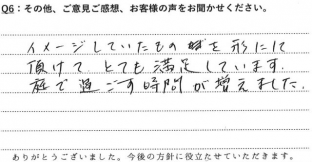 Q6：その他、ご意見ご感想、お客様の声をお聞かせください。
イメージしていたものを形にして
頂けて とても満足しています.
庭で過ごす時間が増えました.
ありがとうございました。今後の方針に役立たせていただきます。